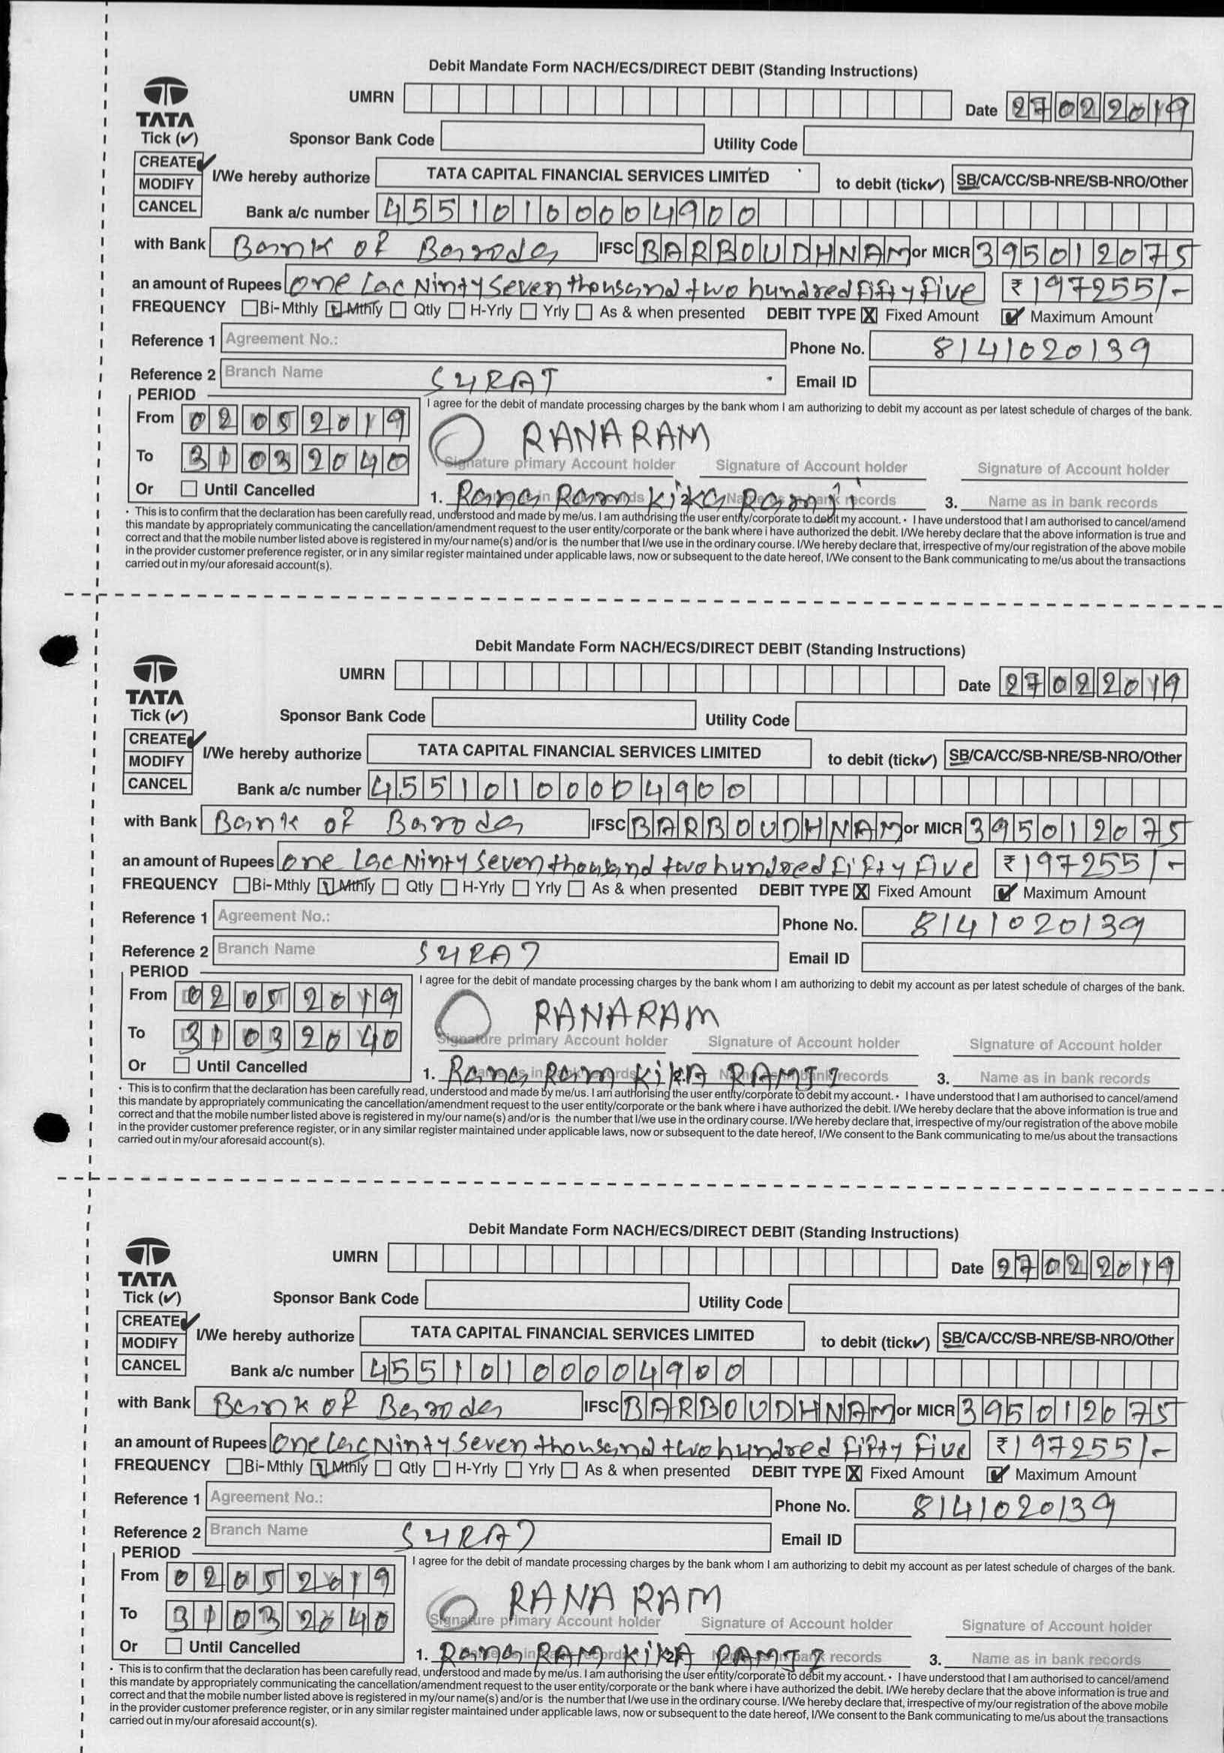 Debit Mandate Form NACH/ECS/DIRECT DEBIT (Standing Instructions)
UMRN Date 27022019
TATA
Tick (✓) Sponsor Bank Code Utility Code
CREATE✓ I/We hereby authorize TATA CAPITAL FINANCIAL SERVICES LIMITED to debit (tick✓) SB/CA/CC/SB-NRE/SB-NRO/Other
MODIFY
CANCEL Bank a/c number 45510100004900
with Bank Bank of Baroda IFSC BARB0UDHNAM or MICR 395012075
an amount of Rupees One Lac Ninty Seven thousand two hundred fifty five ₹ 197255/-
FREQUENCY Bi-Mthly Mthly Qtly H-Yrly Yrly As & when presented DEBIT TYPE X Fixed Amount ✓ Maximum Amount
Reference 1 Agreement No.: Phone No. 8141020139
Reference 2 Branch Name SURAT Email ID
PERIOD I agree for the debit of mandate processing charges by the bank whom I am authorizing to debit my account as per latest schedule of charges of the bank.
From 02052019 RANARAM
To 31032040 Signature primary Account holder Signature of Account holder Signature of Account holder
Or Until Cancelled 1. Rana Ram Kika Ramji 3. Name as in bank records
• This is to confirm that the declaration has been carefully read, understood and made by me/us. I am authorising the user entity/corporate to debit my account. • I have understood that I am authorised to cancel/amend
this mandate by appropriately communicating the cancellation/amendment request to the user entity/corporate or the bank where i have authorized the debit. I/We hereby declare that the above information is true and
correct and that the mobile number listed above is registered in my/our name(s) and/or is the number that I/we use in the ordinary course. I/We hereby declare that, irrespective of my/our registration of the above mobile
in the provider customer preference register, or in any similar register maintained under applicable laws, now or subsequent to the date hereof, I/We consent to the Bank communicating to me/us about the transactions
carried out in my/our aforesaid account(s).
Debit Mandate Form NACH/ECS/DIRECT DEBIT (Standing Instructions)
UMRN Date 27022019
TATA
Tick (✓) Sponsor Bank Code Utility Code
CREATE✓ I/We hereby authorize TATA CAPITAL FINANCIAL SERVICES LIMITED to debit (tick✓) SB/CA/CC/SB-NRE/SB-NRO/Other
MODIFY
CANCEL Bank a/c number 45510100004900
with Bank Bank of Baroda IFSC BARB0UDHNAM or MICR 395012075
an amount of Rupees One Lac Ninty Seven thousand two hundred fifty five ₹ 197255/-
FREQUENCY Bi-Mthly Mthly Qtly H-Yrly Yrly As & when presented DEBIT TYPE X Fixed Amount ✓ Maximum Amount
Reference 1 Agreement No.: Phone No. 8141020139
Reference 2 Branch Name SURAT Email ID
PERIOD I agree for the debit of mandate processing charges by the bank whom I am authorizing to debit my account as per latest schedule of charges of the bank.
From 02052019 RANARAM
To 31032040 Signature primary Account holder Signature of Account holder Signature of Account holder
Or Until Cancelled 1. Rana Ram KikA RAMJI 3. Name as in bank records
• This is to confirm that the declaration has been carefully read, understood and made by me/us. I am authorising the user entity/corporate to debit my account. • I have understood that I am authorised to cancel/amend
this mandate by appropriately communicating the cancellation/amendment request to the user entity/corporate or the bank where i have authorized the debit. I/We hereby declare that the above information is true and
correct and that the mobile number listed above is registered in my/our name(s) and/or is the number that I/we use in the ordinary course. I/We hereby declare that, irrespective of my/our registration of the above mobile
in the provider customer preference register, or in any similar register maintained under applicable laws, now or subsequent to the date hereof, I/We consent to the Bank communicating to me/us about the transactions
carried out in my/our aforesaid account(s).
Debit Mandate Form NACH/ECS/DIRECT DEBIT (Standing Instructions)
UMRN Date 27022019
TATA
Tick (✓) Sponsor Bank Code Utility Code
CREATE✓ I/We hereby authorize TATA CAPITAL FINANCIAL SERVICES LIMITED to debit (tick✓) SB/CA/CC/SB-NRE/SB-NRO/Other
MODIFY
CANCEL Bank a/c number 45510100004900
with Bank Bank of Baroda IFSC BARB0UDHNAM or MICR 395012075
an amount of Rupees One Lac Ninty Seven thousand two hundred fifty five ₹ 197255/-
FREQUENCY Bi-Mthly Mthly Qtly H-Yrly Yrly As & when presented DEBIT TYPE X Fixed Amount ✓ Maximum Amount
Reference 1 Agreement No.: Phone No. 8141020139
Reference 2 Branch Name SURAT Email ID
PERIOD I agree for the debit of mandate processing charges by the bank whom I am authorizing to debit my account as per latest schedule of charges of the bank.
From 02052019 RANA RAM
To 31032040 Signature primary Account holder Signature of Account holder Signature of Account holder
Or Until Cancelled 1. Rana RAM KikA RAMJI 3. Name as in bank records
• This is to confirm that the declaration has been carefully read, understood and made by me/us. I am authorising the user entity/corporate to debit my account. • I have understood that I am authorised to cancel/amend
this mandate by appropriately communicating the cancellation/amendment request to the user entity/corporate or the bank where i have authorized the debit. I/We hereby declare that the above information is true and
correct and that the mobile number listed above is registered in my/our name(s) and/or is the number that I/we use in the ordinary course. I/We hereby declare that, irrespective of my/our registration of the above mobile
in the provider customer preference register, or in any similar register maintained under applicable laws, now or subsequent to the date hereof, I/We consent to the Bank communicating to me/us about the transactions
carried out in my/our aforesaid account(s).